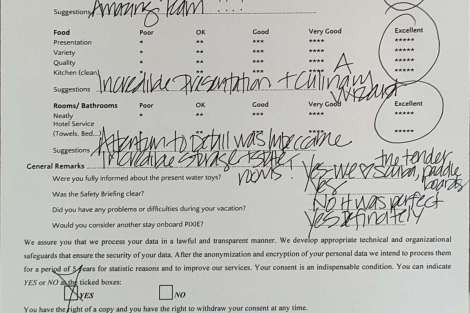 Suggestions Amazing team ....
Food Poor OK Good Very Good Excellent
Presentation * ** *** **** *****
Variety * ** *** **** *****
Quality * ** *** **** *****
Kitchen (clean) * ** *** **** *****
Suggestions Incredible Presentation + Culinary A Wizard
Rooms/ Bathrooms Poor OK Good Very Good Excellent
Neatly
Hotel Service
(Towels, Bed...) ** *****
Suggestions Attention to Detail was
Incredible
General Remarks rooms!
Were you fully informed about the present water toys? Yes we the tender paddle boards
Was the Safety Briefing clear? Yes
Did you have any problems or difficulties during your vacation? No it was perfect
Would you consider another stay onboard PIXIE? Yes Definately
We assure you that we process your data in a lawful and transparent manner. We develop appropriate technical and organizational
safeguards that ensure the security of your data. After the anonymization and encryption of your personal data we intend to process them
for a period of 5 years for statistic reasons and to improve our services. Your consent is an indispensable condition. You can indicate
YES or NO in the ticked boxes:
YES NO
You have the right of a copy and you have the right to withdraw your consent at any time.